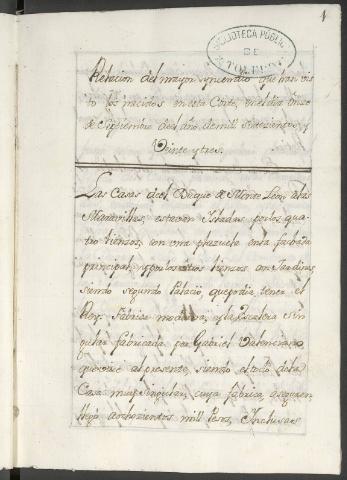 1
BIBLIOTECA PÚBLICA
DE
TOLEDO
Relacion del mayor yncendio que han vis
to los nacidos en esta Corte, en el dia onze
de Septiembre del año de mill setezientos y
Veinte y tres.
Las Casas del Duque de Monte Leon, alas
Maravillas, estavan Isladas por los qua-
tro lienzos, con una plazuela en la fachada
principal, y por los otros lienzos con Jardines,
siendo segundo Palacio, que podia tener el
Rey. Fabrica moderna, y la Escalera sin
gular fabricada por Gabriel Valenciano
que vive al presente, siendo el todo dela
Casa muy singular, cuya fabrica aseguran
llegò a ochozientos mill Pesos, Inclusas